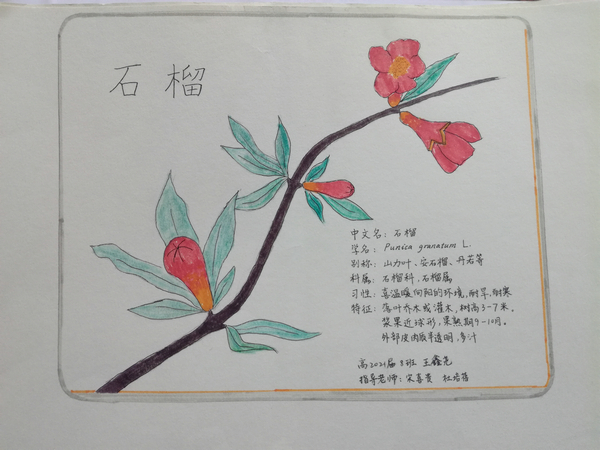 石榴
中文名：石榴
学名：Punica granatum L.
别称：山力叶、安石榴、丹若等
科属：石榴科，石榴属
习性：喜温暖向阳的环境，耐旱，耐寒
特征：落叶乔木或灌木，树高3-7米。
浆果近球形，果熟期9-10月。
外部皮肉质半透明，多汁
高2021届8班 王鑫尧
指导老师：宋喜贵 杜培蓓